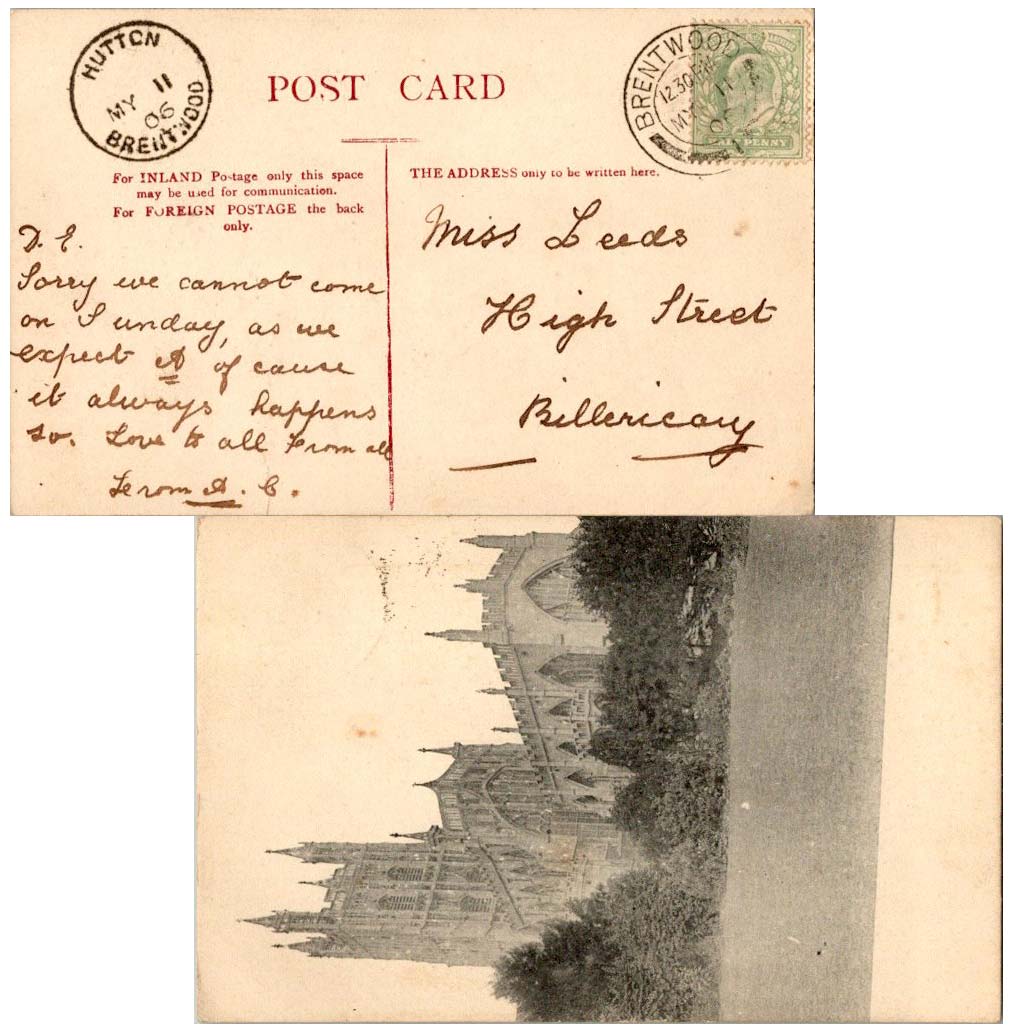 HUTTON
MY 11
06
BRENTWOOD
POST CARD
BRENTWOOD
12.30PM
MY 11
06
HALFPENNY
For INLAND Postage only this space
may be used for communication.
For FOREIGN POSTAGE the back
only.
THE ADDRESS only to be written here.
D. E.
Sorry we cannot come
on Sunday, as we
expect A of cause
it always happens
so. Love to all From all
From A. C.
Miss Leeds
High Street
Billericay